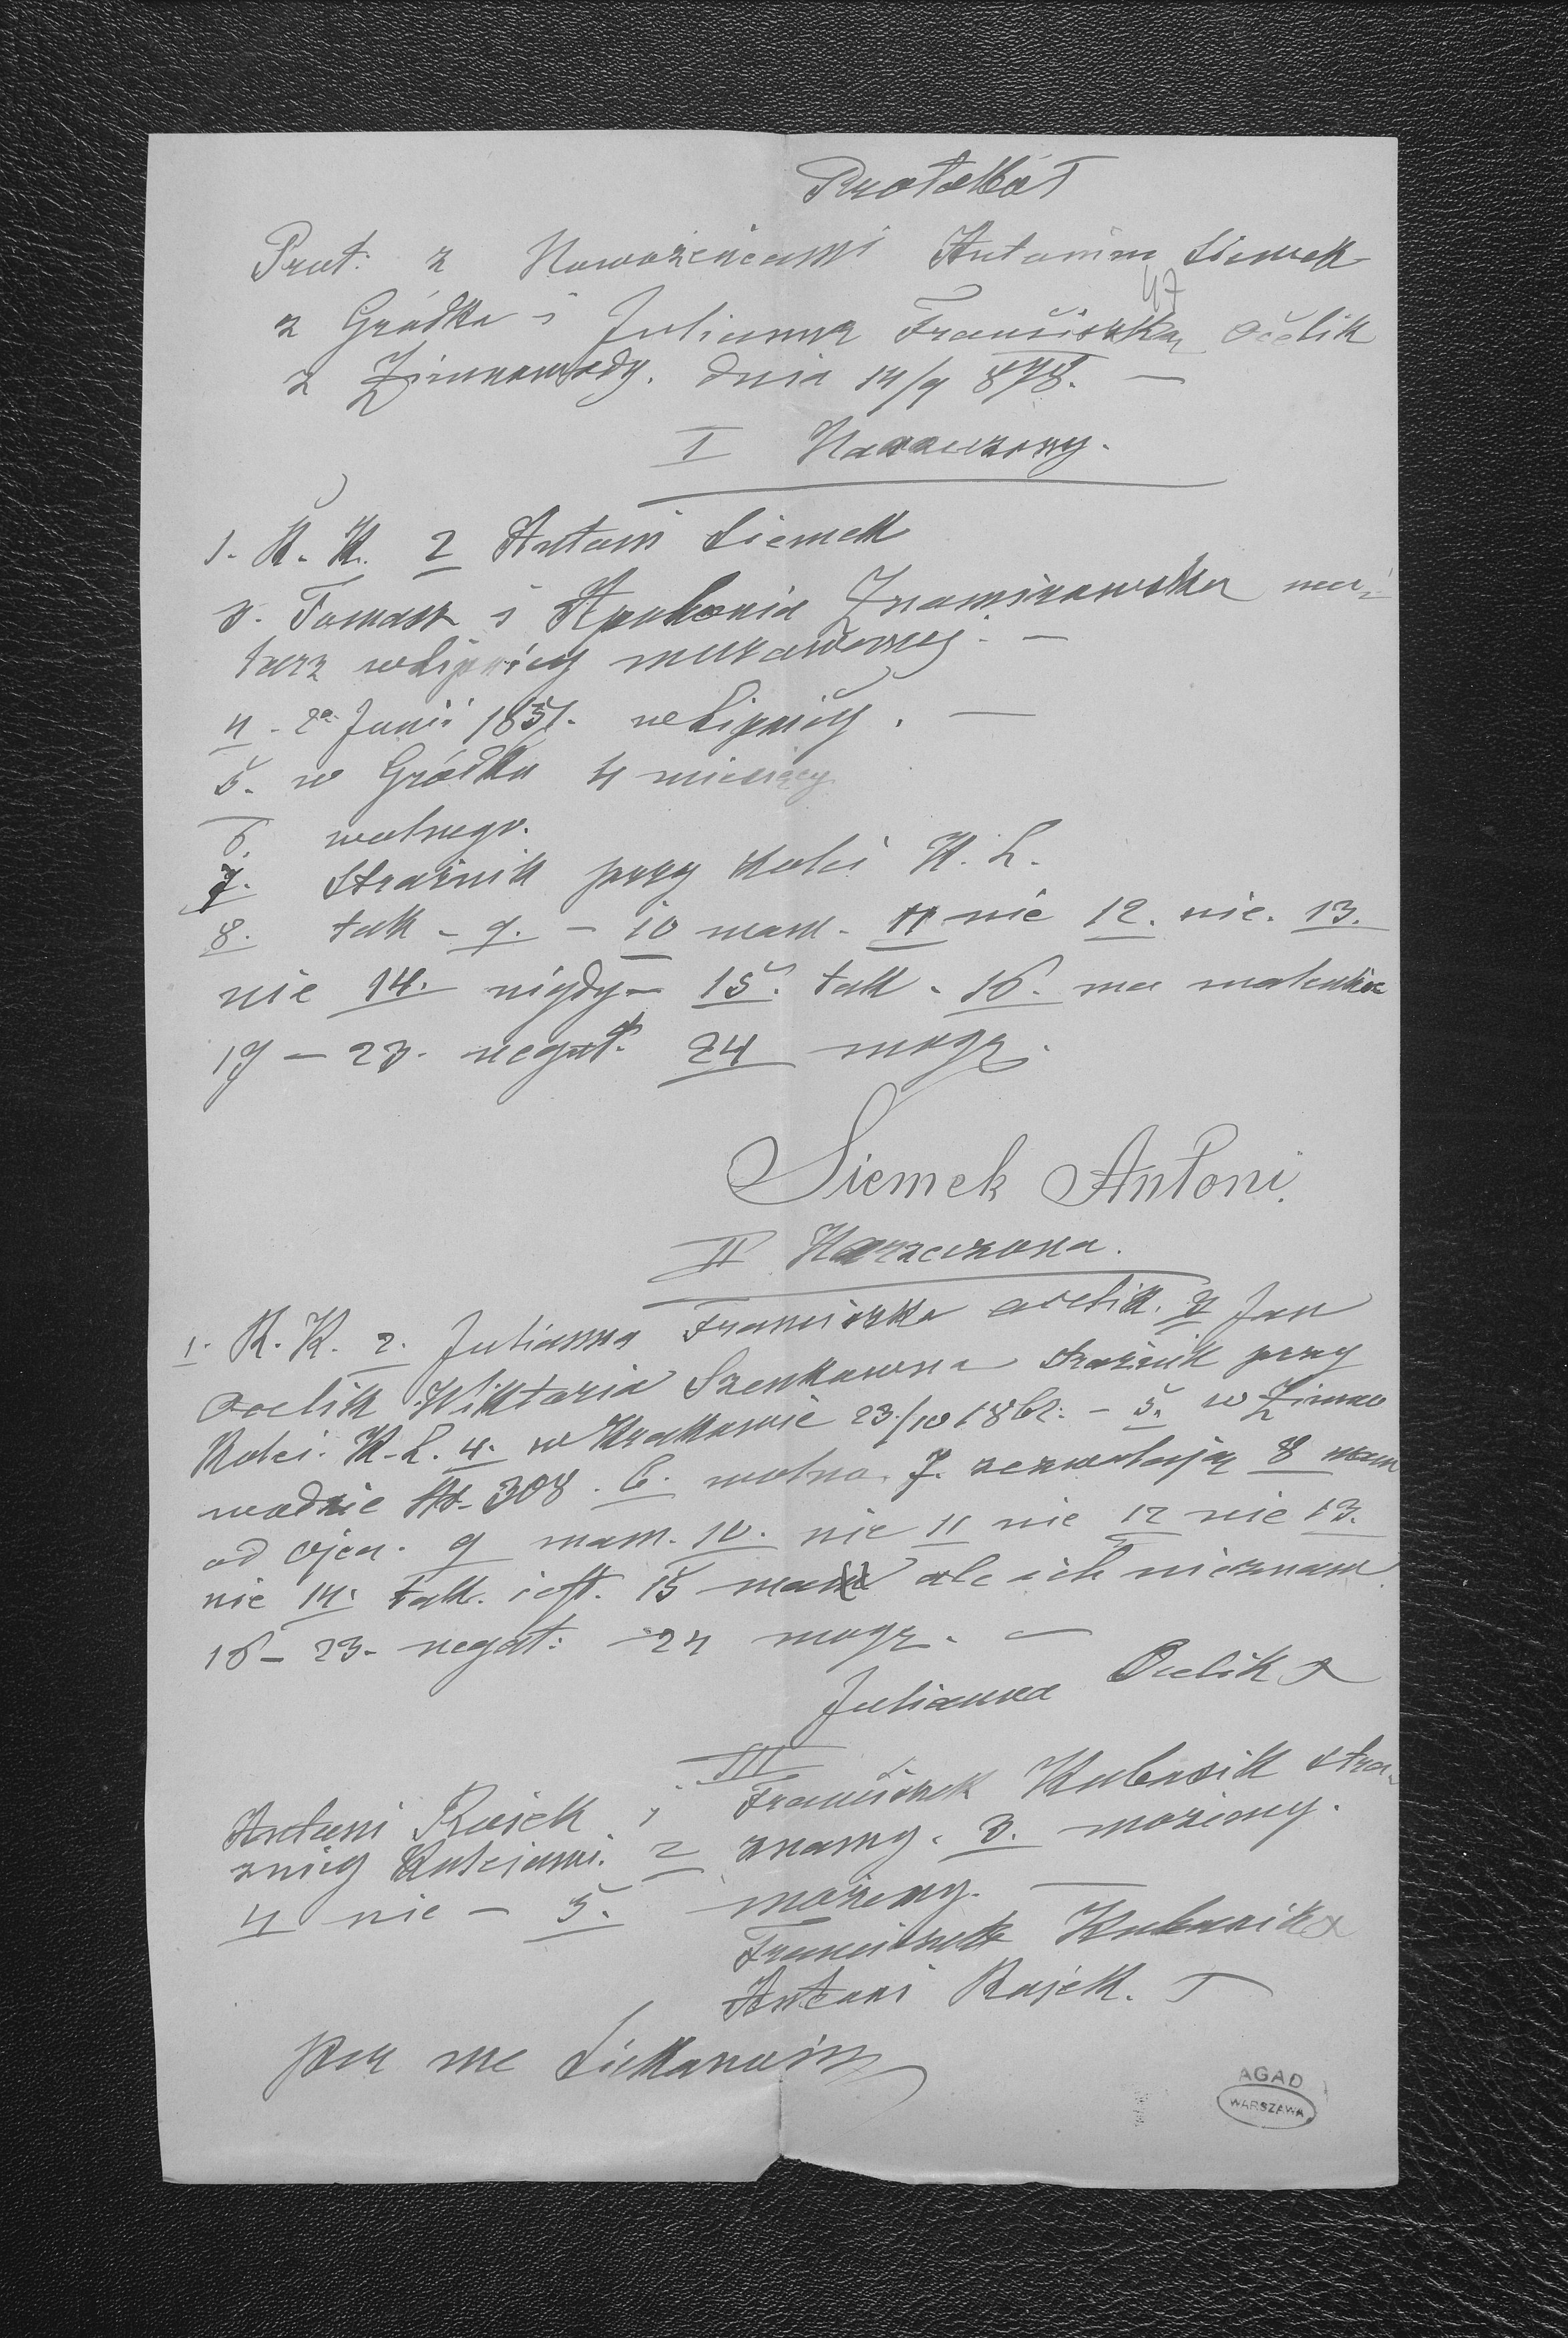 Protokół
Prot: z Nowożeńcami Antonim Siemek
47
z Gródka i Julianną Franciszką Ocelik
z Zimnowody. dnia 14/9 878. —
I Narzeczony.
1. R. K. 2 Antoni Siemek
3. Tomasz i Apolonia Znamirowska mu-
larz w Lipnicy murowanej. —
4. 2º Junii 1851. w Lipnicy. —
5. w Gródku 4 miesięcy
6. wolnego.
7. Strażnik przy kolei K. L.
8. tak - 9. - 10 mam. 11 nie 12. nie. 13.
nie 14. nigdy - 15. tak. 16. ma
17 - 23. negat. 24 mogę.
Siemek Antoni.
II Narzeczona.
1. R. K. 2. Julianna Franciszka Ocelik. 3 Jan
Ocelik Wiktoria strażnik przy
kolei K. L. 4. w Krakowie 23/10 186 - 5. w Zimno
wodzie No 308. 6. wolna. 7. zezwalają 8 mam
od ojca. 9 mam. 10. nie 11 nie 12 nie 13.
nie 14. tak jest. 15 mam ale ich nieznam
16 - 23. negat: 24 mogę. —
Julianna Ocelik x
III
Antoni Rusek i Franciszek Kubasik stra-
żnicy kolejowi. 2 znamy. 3. możemy.
4 nie - 5. możemy. —
Franciszek Kubasik x
Antoni Rusek.
per me
AGAD
WARSZAWA